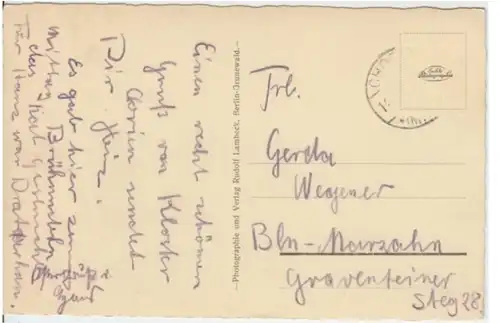 Einen recht schönen
Gruß von Kloster
Chorin sendet
Dir Heinz.
Es gab hier zum
Mittag
das hat geschmeckt
Für Hans war
– Photographie und Verlag Rudolf Lambeck, Berlin-Grunewald. –
Echte Photographie
Frl.
Gerda
Wegener
Bln-Marzahn
Graventeiner
Steg 28.